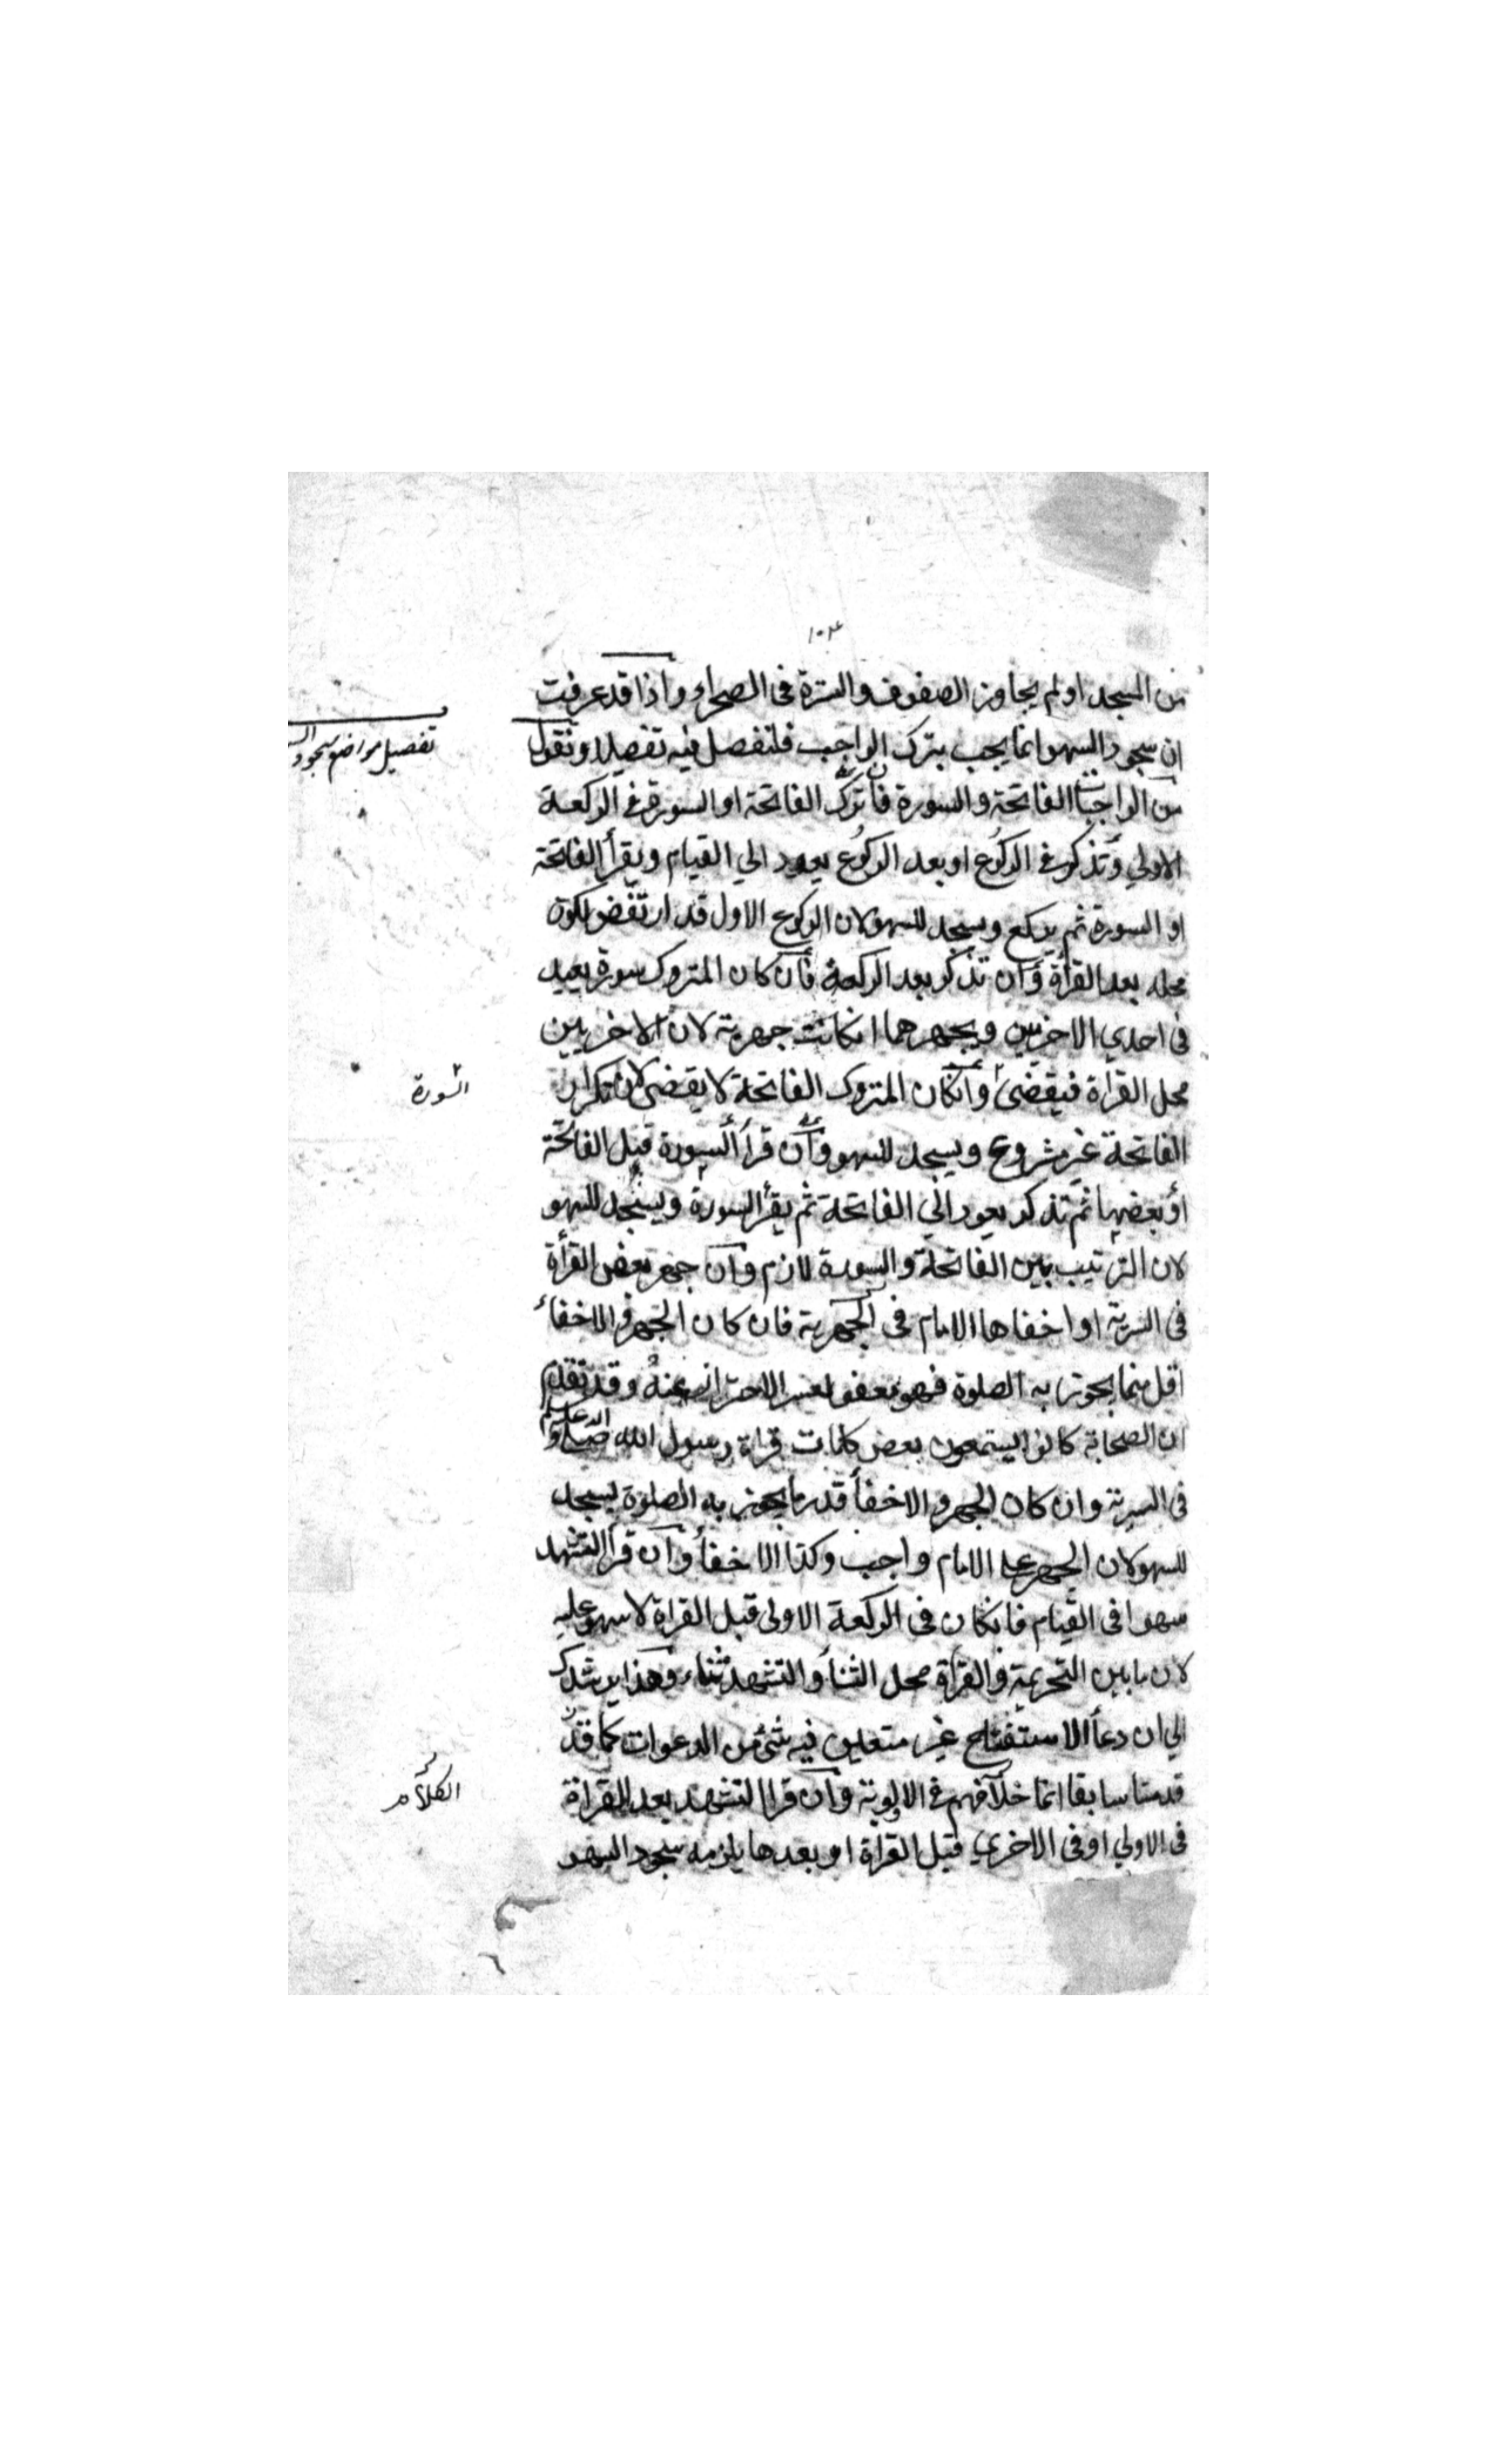 ١٠٤
من المسجد او لم يجاوز الصفوف والسترة فى الصحراء واذا قد عرفت
ان سجود السهو انما يجب بترك الواجب فلنفصل فيه تفصيلا ونقول
تفصيل مواضع سجود
من الواجبات الفاتحة والسورة فان ترك الفاتحة او السورة فى الركعة
الاولي وتذكر فى الركوع او بعد الركوع يعود الي القيام ويقرأ الفاتحة
او السورة ثم يركع ويسجد للسهو لان الركوع الاول قد ارتفض لكونه
محله بعد القرأة وان تذكر بعد الركعة فأن كان المتروك سورة يعيد
فى احدي الاخريين ويجهرهما انكانت جهرية لان الاخريين
محل القراة فيقضى وانكان المتروك الفاتحة لا يقضى لان تكرار
السورة
الفاتحة غير مشروع ويسجد للسهو وأن قرأ السورة قبل الفاتحة
أو بعضها ثم تذكر يعود الي الفاتحة ثم يقرأ السورة ويسجد للسهو
لان الترتيب بين الفاتحة والسورة لازم وان جهر بعض القرأة
فى السرية او اخفاها الامام فى الجهرية فان كان الجهر والاخفاء
اقل مما يجوز به الصلوة فهو معفو لعسر الاحتراز عنه وقد تقدم
ان الصحابة كانوا يستمعون بعض كلمات قراة رسول الله صلى الله عليه وسلم
فى السرية وان كان الجهر والاخفأ قدر ما يجوز به الصلوة يسجد
للسهو لان الجهر على الامام واجب وكذا الاخفأ وان قرأ التشهد
سهوا فى القيام فانكان فى الركعة الاولى قبل القراة لا سهو عليه
لان ما بين التحريمة والقرأة محل الثنأ والتشهد ثناء وهذا يرشدك
الي ان دعأ الاستفتاح غير متعين فيه شئ من الدعوات كما قد
قدمنا سابقا انما خلافهم فى الاولوية وان قرا التشهد بعد القرائة
الكلام
فى الاولي او فى الاخري قبل القراة او بعدها يلزمه سجود السهو